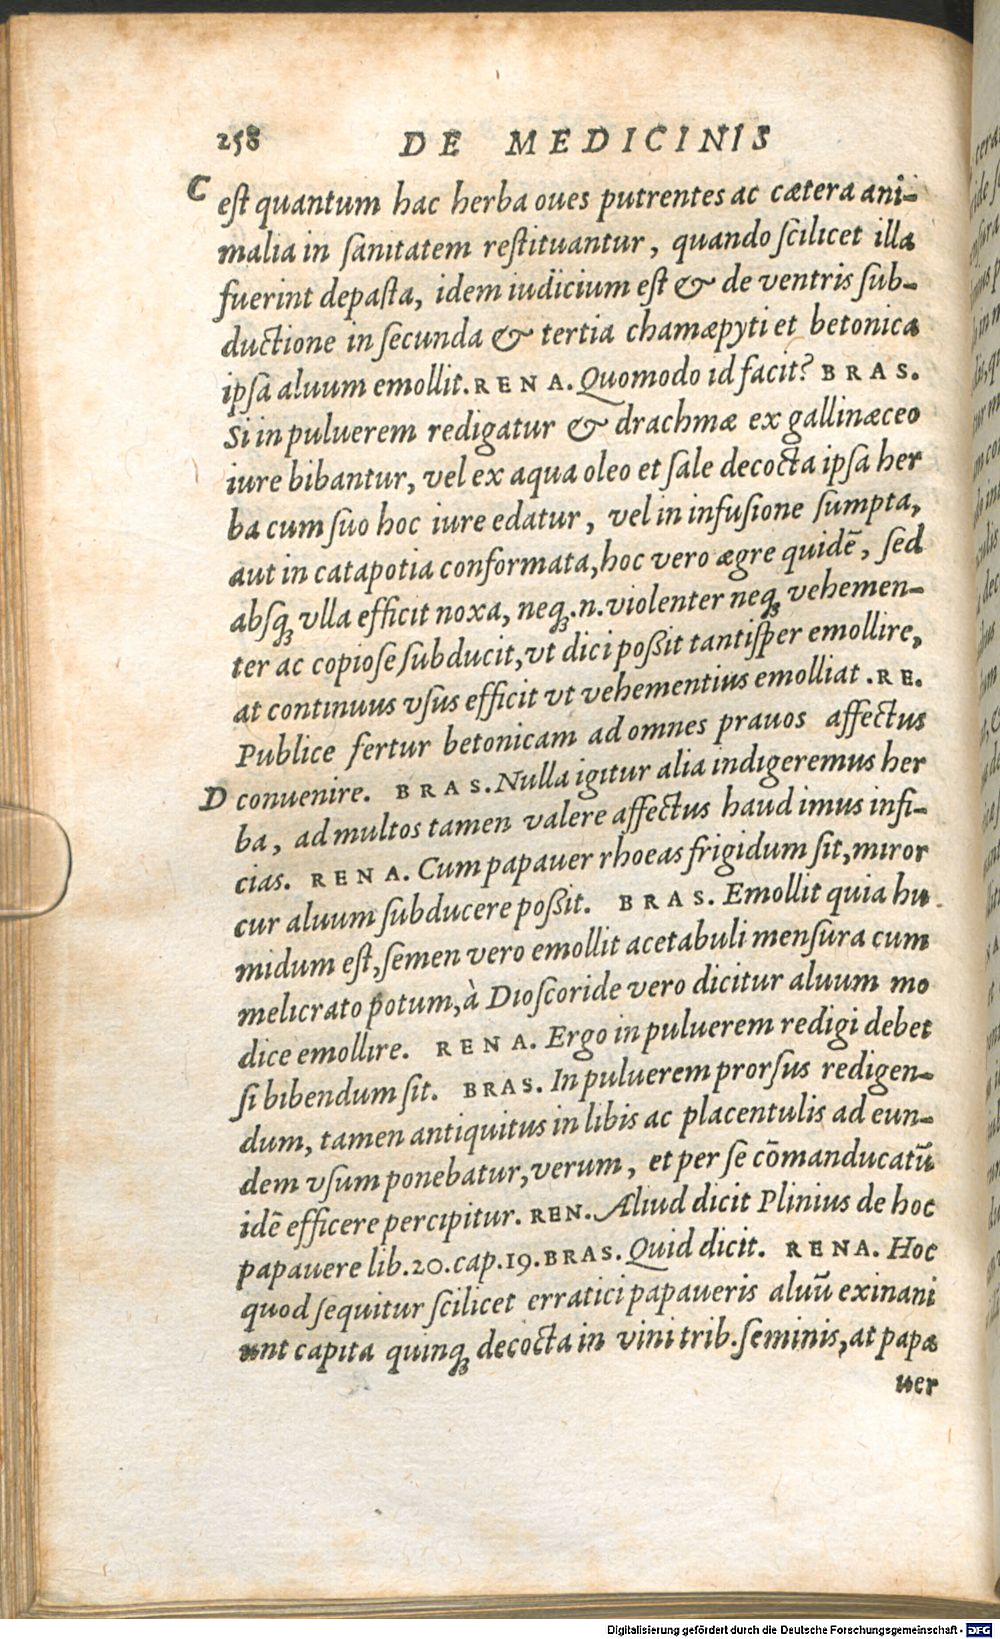 258 DE MEDICINIS
C est quantum hac herba oues putrentes ac cætera ani-
malia in sanitatem restituantur, quando scilicet illa
fuerint depasta, idem iudicium est & de ventris sub-
ductione in secunda & tertia chamæpyti et betonica
ipsa aluum emollit. RENA. Quomodo id facit? BRAS.
Si in puluerem redigatur & drachmæ ex gallinæceo
iure bibantur, vel ex aqua oleo et sale decocta ipsa her
ba cum suo hoc iure edatur, vel in infusione sumpta,
aut in catapotia conformata, hoc vero ægre quidē, sed
absq; vlla efficit noxa, neq;.n.violenter neq; vehemen-
ter ac copiose subducit, vt dici poßit tantisper emollire,
at continuus vsus efficit vt vehementius emolliat. RE.
Publice fertur betonicam ad omnes prauos affectus
D conuenire. BRAS. Nulla igitur alia indigeremus her
ba, ad multos tamen valere affectus haud imus infi-
cias. RENA. Cum papauer rhoeas frigidum sit, miror
cur aluum subducere poßit. BRAS. Emollit quia hu
midum est, semen vero emollit acetabuli mensura cum
melicrato potum, à Dioscoride vero dicitur aluum mo
dice emollire. RENA. Ergo in puluerem redigi debet
si bibendum sit. BRAS. In puluerem prorsus redigen-
dum, tamen antiquitus in libis ac placentulis ad eun-
dem vsum ponebatur, verum, et per se cōmanducatū
idē efficere percipitur. REN. Aliud dicit Plinius de hoc
papauere lib.20.cap.19. BRAS. Quid dicit. RENA. Hoc
quod sequitur scilicet erratici papaueris aluū exinani
unt capita quinq; decocta in vini trib. seminis, at papa
uer
Digitalisierung gefördert durch die Deutsche Forschungsgemeinschaft - DFG